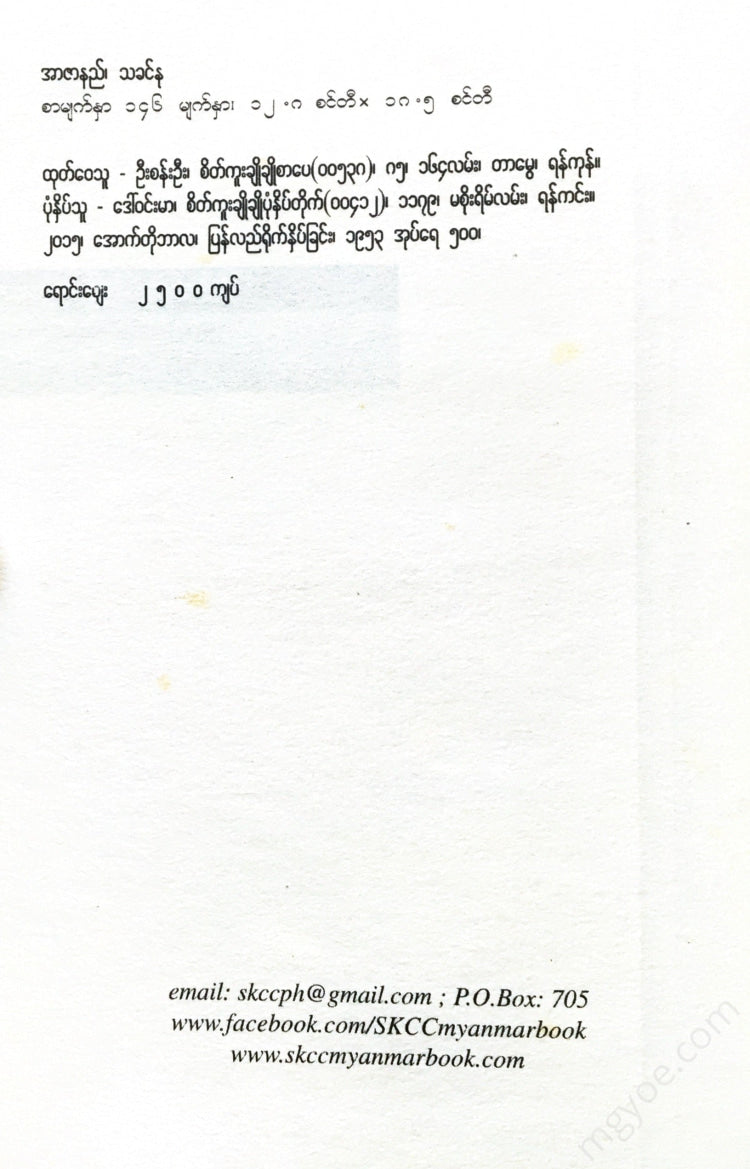 အာဇာနည်၊ သခင်န
စာမျက်နှာ ၁၄၆ မျက်နှာ၊ ၁၂.ဂ စင်တီ× ၁ဂ.၅ စင်တီ
ထုတ်ဝေသူ - ဦးစန်းဦး၊ စိတ်ကူးချိုချိုစာပေ(၀၀၅၃ဂ)၊ ဂ၅၊ ၁၆၄လမ်း၊ တာမွေ၊ ရန်ကုန်။
ပုံနှိပ်သူ - ဒေါ်ဝင်းမာ၊ စိတ်ကူးချိုချိုပုံနှိပ်တိုက်(၀၀၄၁၂)၊ ၁၁၇၉၊ မစိုးရိမ်လမ်း၊ ရန်ကင်း။
၂၀၁၅၊ အောက်တိုဘာလ၊ ပြန်လည်ရိုက်နှိပ်ခြင်း၊ ၁၉၅၃ အုပ်ရေ ၅၀၀၊
ရောင်းဈေး ၂၅၀၀ကျပ်
email: skccph@gmail.com ; P.O.Box: 705
www.facebook.com/SKCCmyanmarbook
www.skccmyanmarbook.com
mgyoe.com